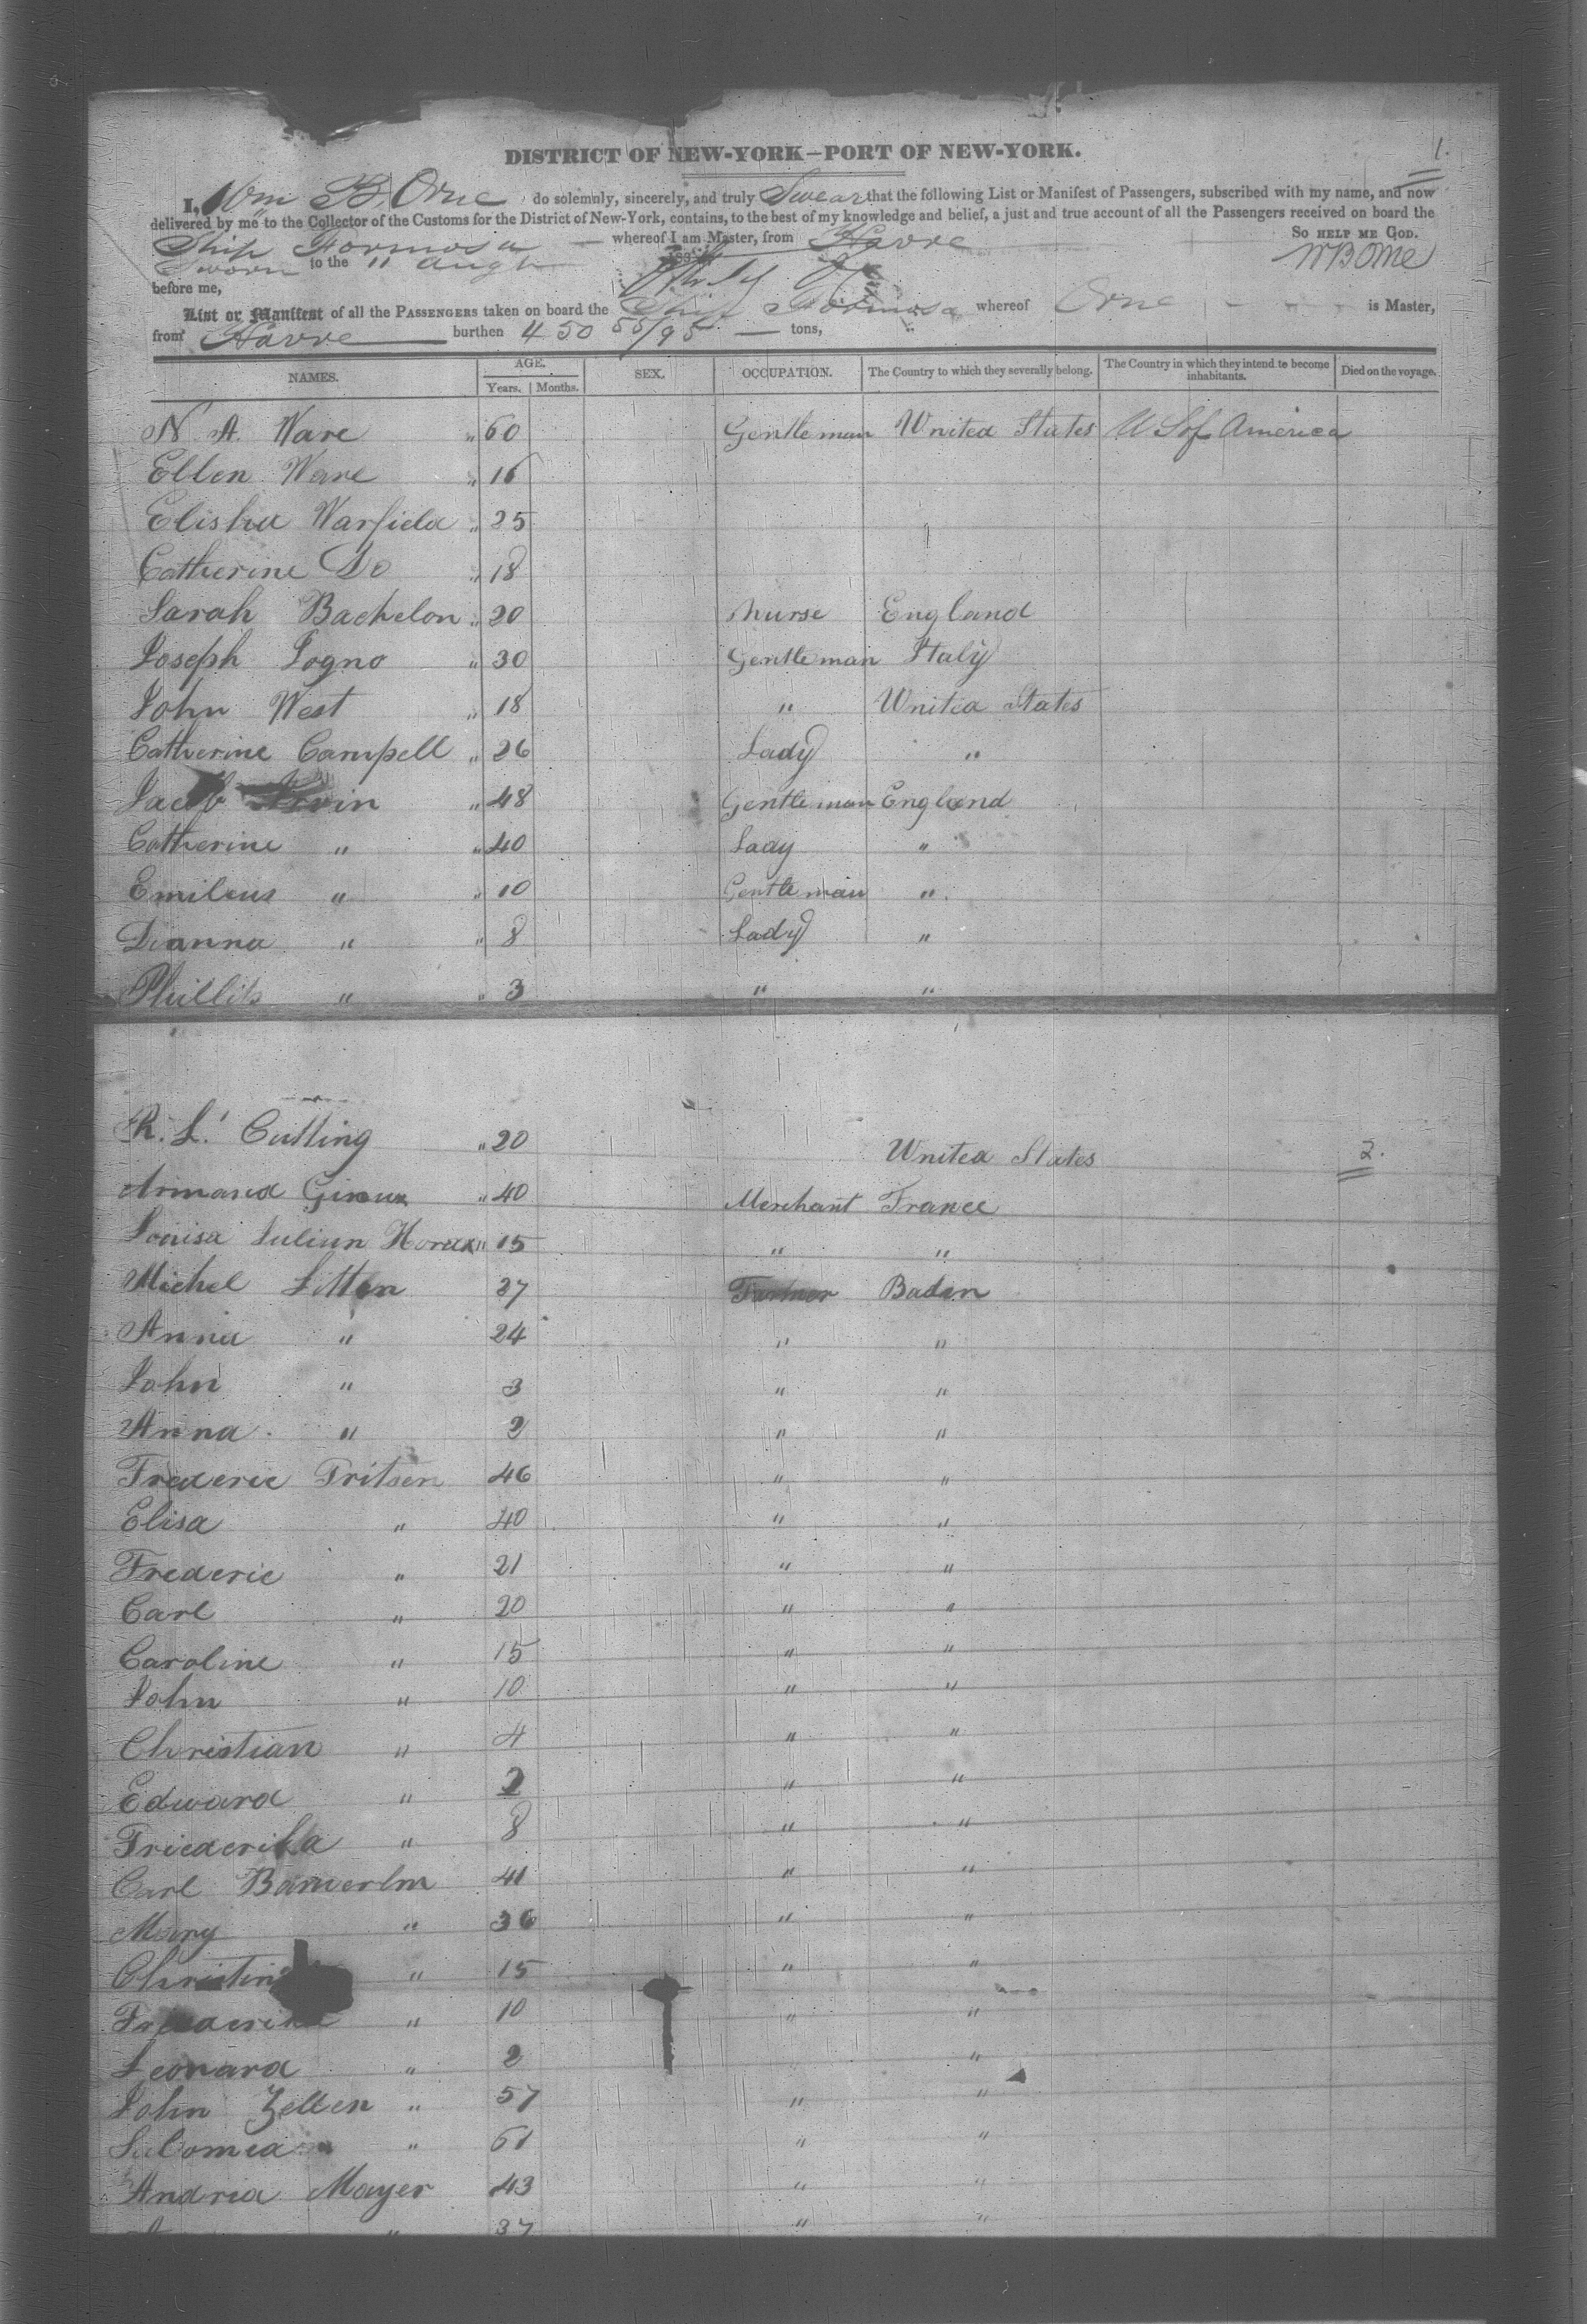 1.
DISTRICT OF NEW-YORK—PORT OF NEW-YORK.
I, Wm B. Orne do solemnly, sincerely, and truly Swear that the following List or Manifest of Passengers, subscribed with my name, and now
delivered by me to the Collector of the Customs for the District of New-York, contains, to the best of my knowledge and belief, a just and true account of all the Passengers received on board the
Ship Formosa — whereof I am Master, from Havre
So help me God.
Sworn to the 11 Augt
WB Orne
before me,
List or Manifest of all the Passengers taken on board the Ship Formosa whereof Orne - - - is Master,
from Havre burthen 450 55/95 — tons,
NAMES. AGE. Years. Months. SEX. OCCUPATION. The Country to which they severally belong. The Country in which they intend to become inhabitants. Died on the voyage.
N. A. Ware " 60 Gentleman United States U S of America
Ellen Ware " 16
Elisha Warfield " 25
Catherine Do " 18
Sarah Bachelon " 20 Nurse England
Joseph Togno " 30 Gentleman Italy
John West " 18 " United States
Catherine Campell " 26 Lady "
Jacob " 48 Gentleman England
Catherine " " 40 Lady "
Emileus " " 10 Gentleman "
Dianna " " 8 Lady "
Phillis " " 3 " "
R. L. Cutting " 20 United States
2.
Armand Giroux " 40 Merchant France
Louisa Julian " 15 " "
Michel Litten 27 Farmer Baden
Anna " 24 " "
John " 3 " "
Anna " 2 " "
Frederic Fritsen 46 " "
Elisa " 40 " "
Frederic " 21 " "
Carl " 20 " "
Caroline " 15 " "
John " 10 " "
Christian " 4 " "
Edward " 2 " "
Friederika " 8 " "
Carl 41 " "
Mary " 36 " "
Christin " 15 " "
Frederika " 10 " "
Leonard " 2 "
John Zellen " 57 " "
Salomea " 61 " "
Andria Mayer 43 " "
" 37 " "